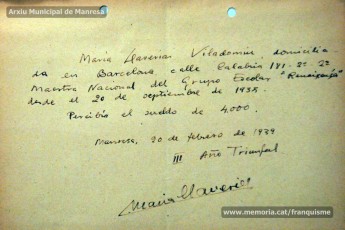 Arxiu Municipal de Manresa
Maria Llaverias Viladomiu, domicilia
da en Barcelona calle Calabria 191-2º-2ª
Maestra Nacional del Grupo Escolar "Renaixença"
desde el 20 de septiembre de 1935.
Percibía el sueldo de 4000.
Manresa, 20 de febrero de 1939
III Año Triunfal
Maria Llaverias
www.memoria.cat/franquisme